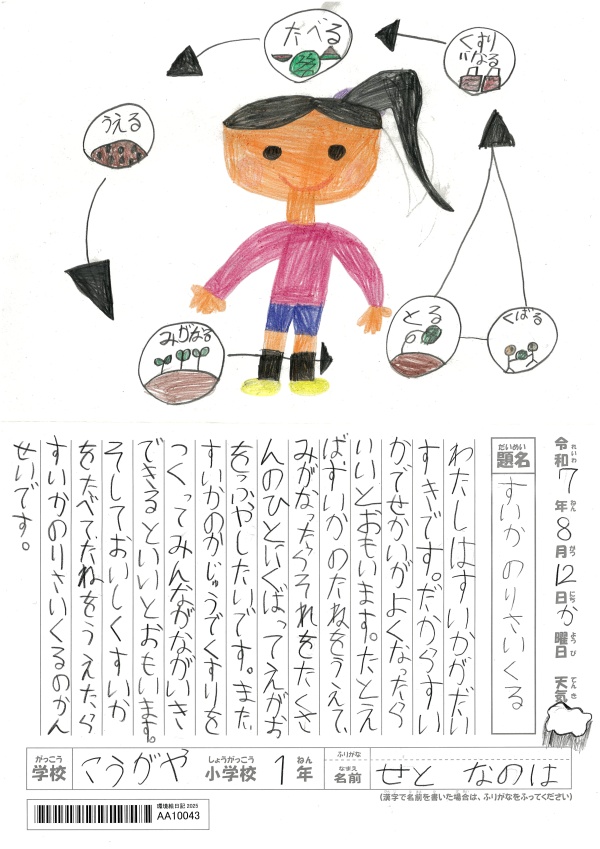 たべる
くすりになる
うえる
みがなる
とる
くばる
令和7年8月12日か曜日 天気
れいわ ねん がつ にち ようび てんき
だいめい
題名
すいかのりさいくる
わたしはすいかがだい
すきです。だからすい
かでせかいがよくなったら
いいとおもいます。たとえ
ばすいかのたねをうえて、
みがなったらそれをたくさ
んのひとにくばってえがお
をふやしたいです。また、
すいかのかじゅうでくすりを
つくってみんながながいき
できるといいとおもいます。
そしておいしくすいか
をたべてたねをうえたら
すいかのりさいくるのかん
せいです。
がっこう しょうがっこう ねん
学校 こうがや 小学校 1年
ふりがな
なまえ
名前 せと なのは
(漢字で名前を書いた場合は、ふりがなをふってください)
環境絵日記 2025
AA10043